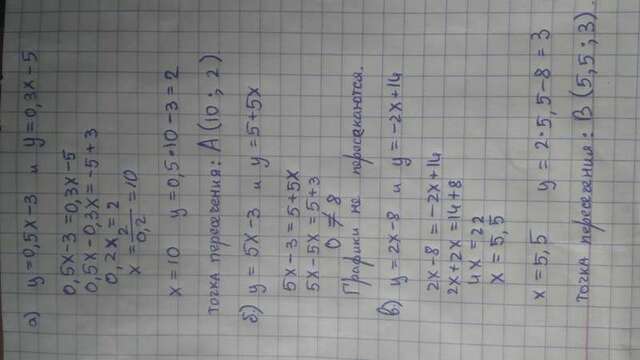 а) y = 0,5x-3 и y = 0,3x-5
0,5x-3 = 0,3x-5
0,5x-0,3x = -5+3
0,2x = 2
x = 2/0,2 = 10
x = 10 y = 0,5·10-3 = 2
точка пересечения: A (10; 2).
б) y = 5x-3 и y = 5+5x
5x-3 = 5+5x
5x-5x = 5+3
0 ≠ 8
Графики не пересекаются.
в) y = 2x-8 и y = -2x+14
2x-8 = -2x+14
2x+2x = 14+8
4x = 22
x = 5,5
x = 5,5 y = 2·5,5-8 = 3
точка пересечения: B (5,5; 3).